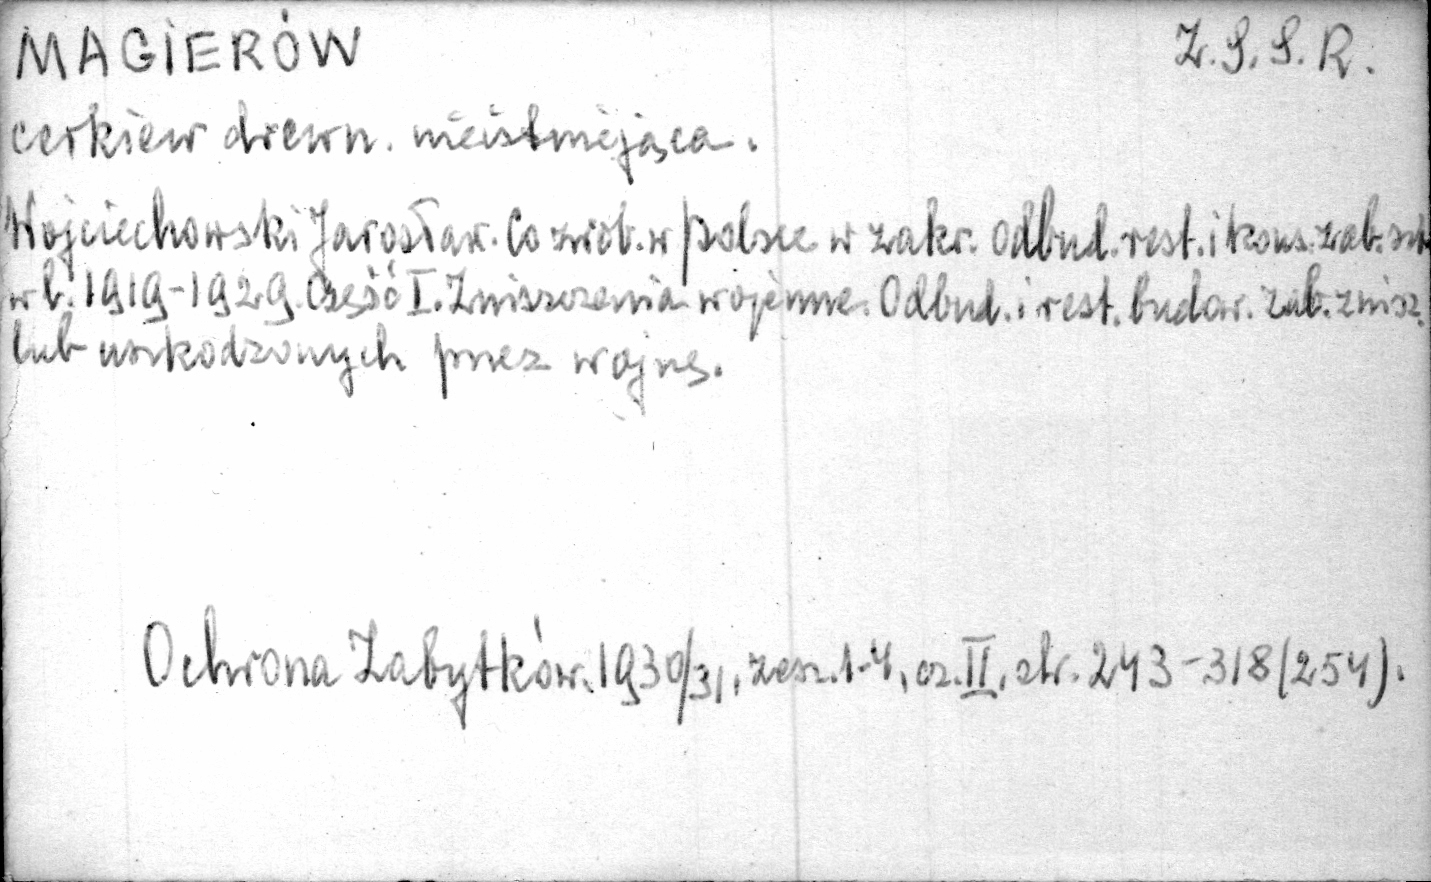 MAGIERÓW Z.S.S.R.
cerkiew drewn. nieistniejąca.
Wojciechowski Jarosław. Co zrob. w Polsce w zakr. Odbud. rest. i kons. zab. szt.
w l. 1919-1929. Część I. Zniszczenia wojenne. Odbud. i rest. budow. zab. znisz.
lub uszkodzonych przez wojnę.
Ochrona Zabytków. 1930/31, zesz. 1-4, cz. II, str. 243-318 (254).